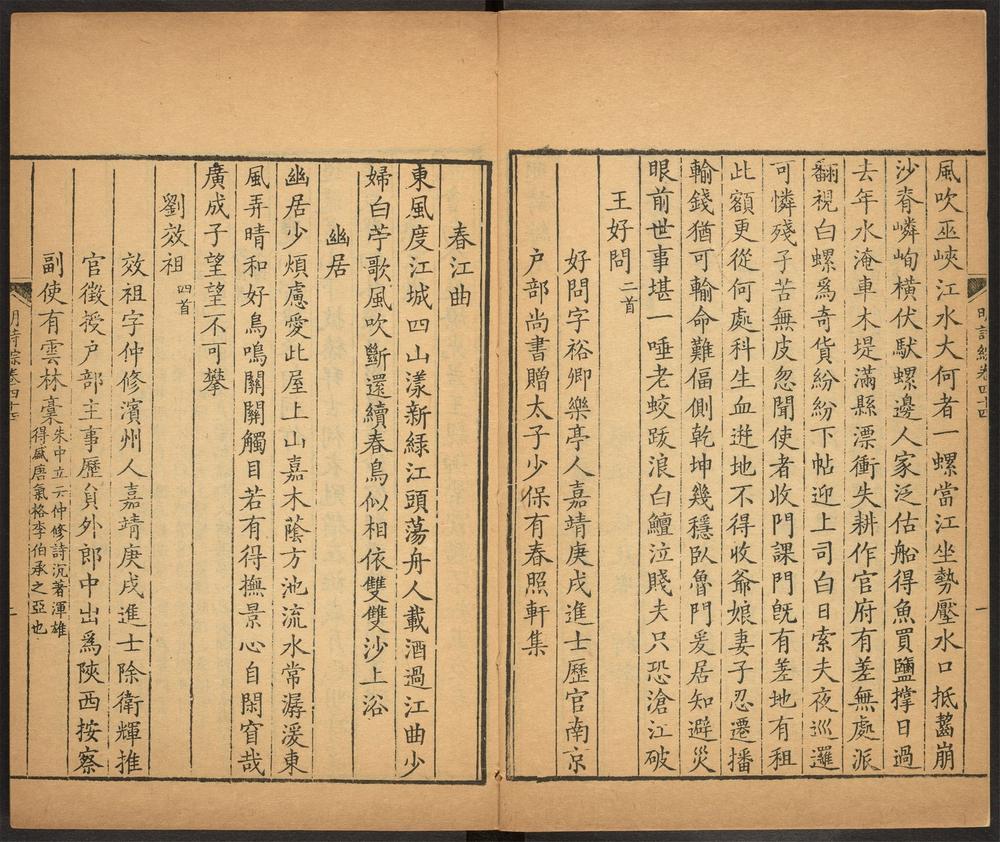 風吹巫峽江水大何者一螺當江坐勢壓水口抵齧崩
沙脊嶙峋橫伏馱螺邊人家泛估船得魚買鹽撑日過
去年水淹車木堤滿縣漂衝失耕作官府有差無處派
翻視白螺爲奇貨紛紛下帖迎上司白日索夫夜巡邏
可憐殘子苦無皮忽聞使者收門課門旣有差地有租
此額更從何處科生血逬地不得收爺娘妻子忍遷播
輸錢猶可輸命難偪側乾坤幾穩臥魯門爰居知避災
眼前世事堪一唾老蛟跋浪白鱣泣賤夫只恐滄江破
王好問 二首
好問字裕卿樂亭人嘉靖庚戌進士歷官南京
户部尚書贈太子少保有春照軒集
明詩綜卷四十四
一
春江曲
東風度江城四山漾新綠江頭蕩舟人載酒過江曲少
婦白苧歌風吹斷還續春鳥似相依雙雙沙上浴
幽居
幽居少煩慮愛此屋上山嘉木蔭方池流水常潺湲東
風弄晴和好鳥鳴關關觸目若有得撫景心自閑窅哉
廣成子望望不可攀
劉效祖 四首
效祖字仲修濱州人嘉靖庚戌進士除衛輝推
官徵授户部主事歷員外郎中出爲陝西按察
副使有雲林稾 朱中立云仲修詩沉著渾雄
得盛唐氣格李伯承之亞也
明詩綜卷四十四
二